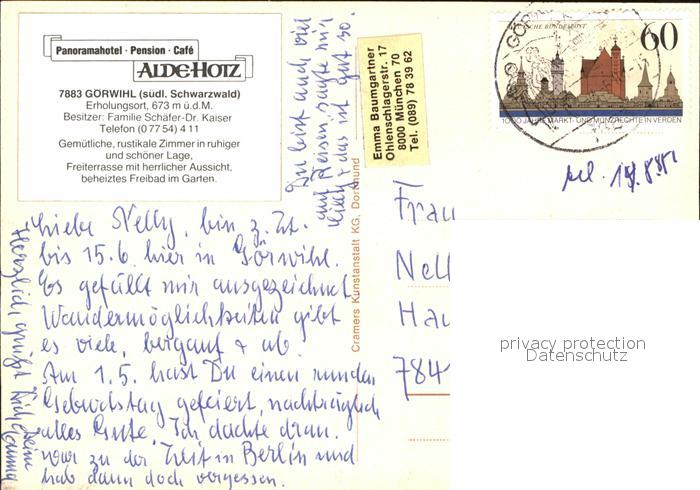 Panoramahotel · Pension · Café
ALDE-HOTZ
7883 GÖRWIHL (südl. Schwarzwald)
Erholungsort, 673 m ü.d.M.
Besitzer: Familie Schäfer-Dr. Kaiser
Telefon (0 77 54) 4 11
Gemütliche, rustikale Zimmer in ruhiger
und schöner Lage,
Freiterrasse mit herrlicher Aussicht,
beheiztes Freibad im Garten.
Liebe Nelly, bin z. Zt.
bis 15.6. hier in Görwihl.
Es gefällt mir ausgezeichnet
Wandermöglichkeiten gibt
es viele, bergauf + ab.
Am 1.5. hast Du einen runden
Geburtstag gefeiert, nachträglich
alles Gute. Ich dachte dran.
war zu der Zeit in Berlin und
hab dann doch vergessen.
Du bist auch viel
auf Reisen, sagte mir
+ das ist gut so.
Herzlich grüßt Dich Deine
Emma
Cramers Kunstanstalt KG, Dortmund
Emma Baumgartner
Ohlenschlagerstr. 17
8000 München 70
Tel. (089) 78 39 62
DEUTSCHE BUNDESPOST
60
1000 JAHRE MARKT- UND MÜNZRECHTE IN VERDEN
GÖRW
Frau
Nell
Hau
784
privacy protection
Datenschutz